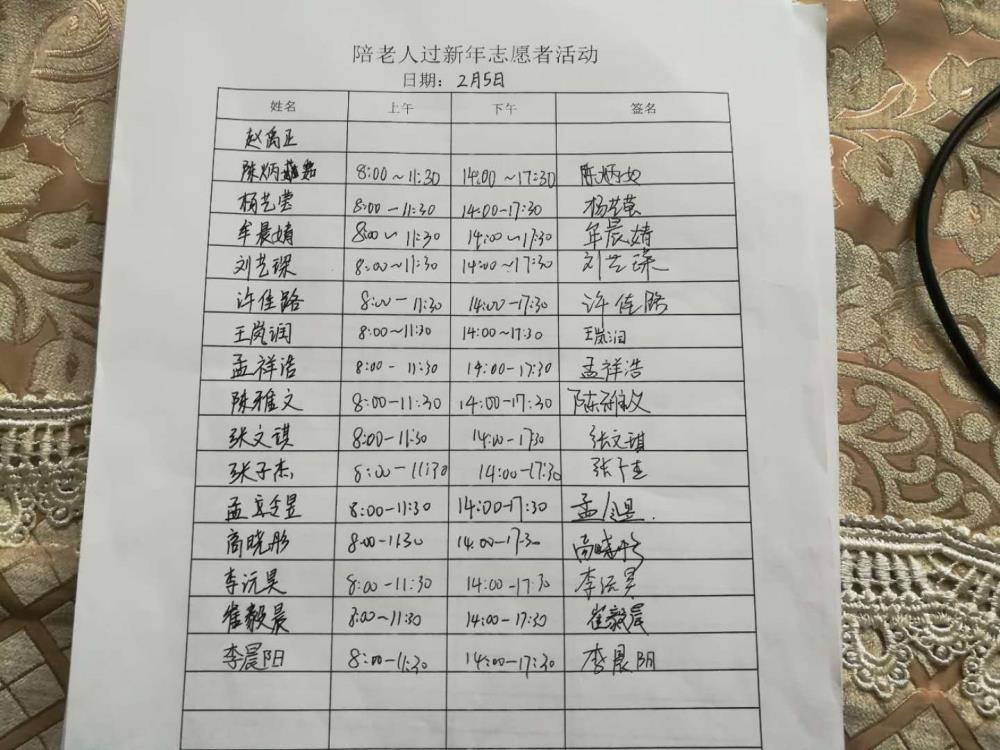 陪老人过新年志愿者活动
日期：2月5日
姓名 上午 下午 签名
赵禹正
陈炳 8:00~11:30 14:00~17:30 陈炳如
杨艺莹 8:00-11:30 14:00-17:30 杨艺莹
牟晨婧 8:00~11:30 14:00~17:30 牟晨婧
刘艺琛 8:00~11:30 14:00~17:30 刘艺琛
许佳路 8:00-11:30 14:00-17:30 许佳路
王岚润 8:00~11:30 14:00~17:30 王岚润
孟祥浩 8:00-11:30 14:00-17:30 孟祥浩
陈雅文 8:00-11:30 14:00-17:30 陈雅文
张文祺 8:00-11:30 14:00-17:30 张文琪
张子杰 8:00-11:30 14:00-17:30 张子杰
孟 昱 8:00-11:30 14:00-17:30 孟
商晓彤 8:00-11:30 14:00-17:30 商晓彤
李沅昊 8:00-11:30 14:00-17:30 李沅昊
崔毅晨 8:00-11:30 14:00-17:30 崔毅晨
李晨阳 8:00-11:30 14:00-17:30 李晨阳